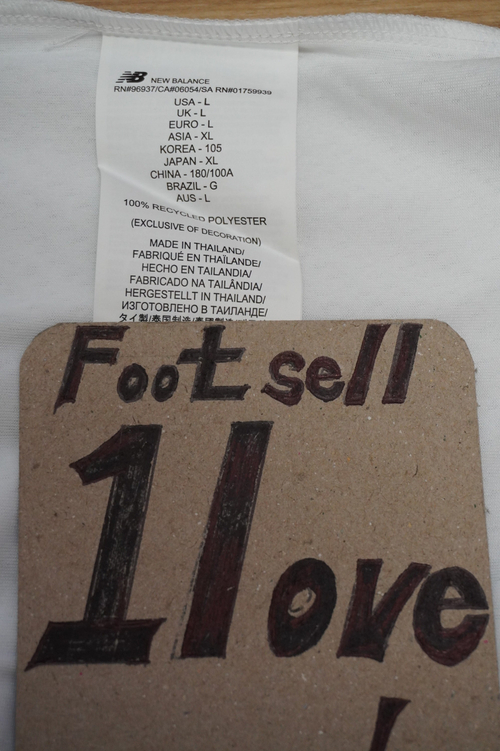 NB NEW BALANCE
RN#96937/CA#06054/SA RN#01759939
USA - L
UK - L
EURO - L
ASIA - XL
KOREA - 105
JAPAN - XL
CHINA - 180/100A
BRAZIL - G
AUS - L
100% RECYCLED POLYESTER
(EXCLUSIVE OF DECORATION)
MADE IN THAILAND/
FABRIQUÉ EN THAÏLANDE/
HECHO EN TAILANDIA/
FABRICADO NA TAILÂNDIA/
HERGESTELLT IN THAILAND/
ИЗГОТОВЛЕНО В ТАИЛАНДЕ/
タイ製/泰国制造/泰國製造/
Foot sell
1love